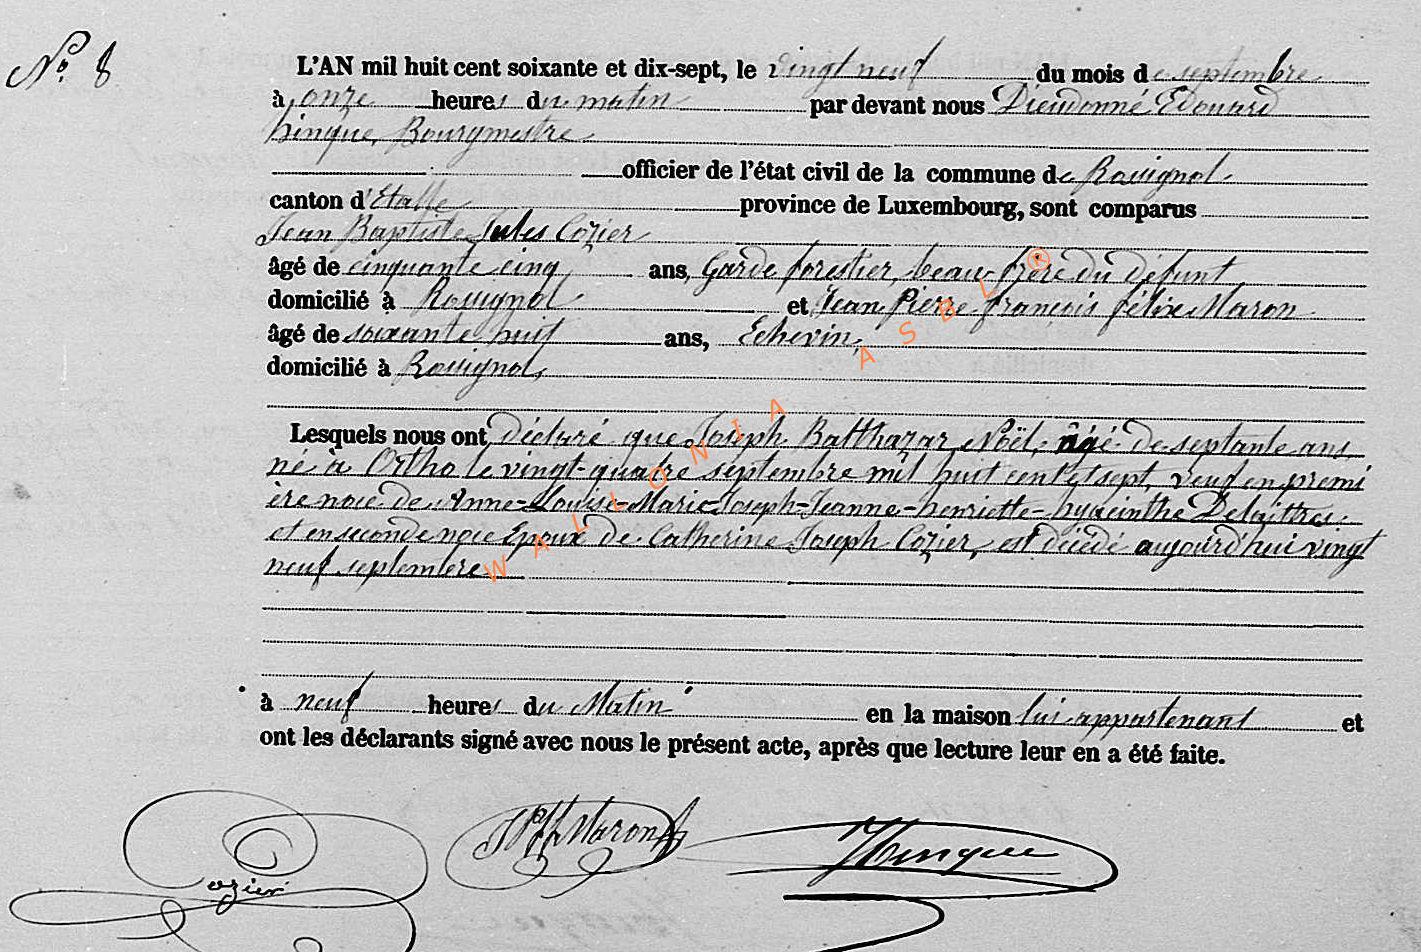 No. 8
L'AN mil huit cent soixante et dix-sept, le vingt neuf du mois de septembre
à onze heures du matin par devant nous Dieudonné Edouard
hinque, Bourgmestre
officier de l'état civil de la commune de Rossignol
canton d'Etalle province de Luxembourg, sont comparus
Jean Baptiste Jules Cozier
âgé de cinquante cinq ans, Garde forestier, beau-frère du défunt
domicilié à Rossignol et Jean Pierre françois félix Maron
âgé de soixante huit ans, Echevin,
domicilié à Rossignol,
Lesquels nous ont déclaré que Joseph Balthazar Noël, âgé de septante ans,
né à Ortho le vingt-quatre septembre mil huit cent et sept, veuf en premi
ère noce de Anne-Louise-Marie-Joseph-Jeanne-henriette-hyacinthe Delaittre,
et en seconde noce Epoux de Catherine Joseph Cozier, est décédé aujourd'hui vingt
neuf septembre
à neuf heures du Matin en la maison lui appartenant et
ont les déclarants signé avec nous le présent acte, après que lecture leur en a été faite.
Cozier JPff Maron Hinque
WALLONIA ASBL ®